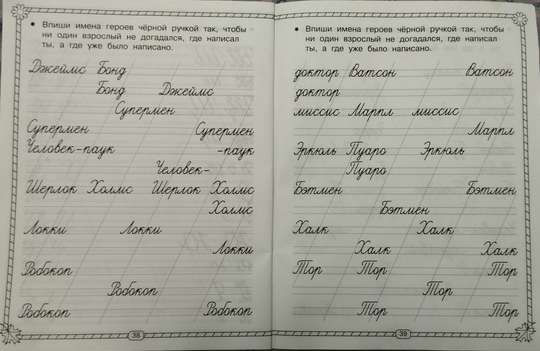 • Впиши имена героев чёрной ручкой так, чтобы
ни один взрослый не догадался, где написал
ты, а где уже было написано.
Джеймс Бонд
Бонд Джеймс
Супермен
Супермен Супермен
Человек-паук -паук
Человек-
Шерлок Холмс Шерлок Холмс
Холмс
Локки Локки
Локки
Робокоп
Робокоп
Робокоп Робокоп
38
• Впиши имена героев чёрной ручкой так, чтобы
ни один взрослый не догадался, где написал
ты, а где уже было написано.
доктор Ватсон Ватсон
доктор
миссис Марпл миссис
Марпл
Эркюль Пуаро Эркюль
Пуаро
Бэтмен Бэтмен
Бэтмен
Халк Халк
Халк Халк
Тор Тор Тор
Тор
Тор Тор
39